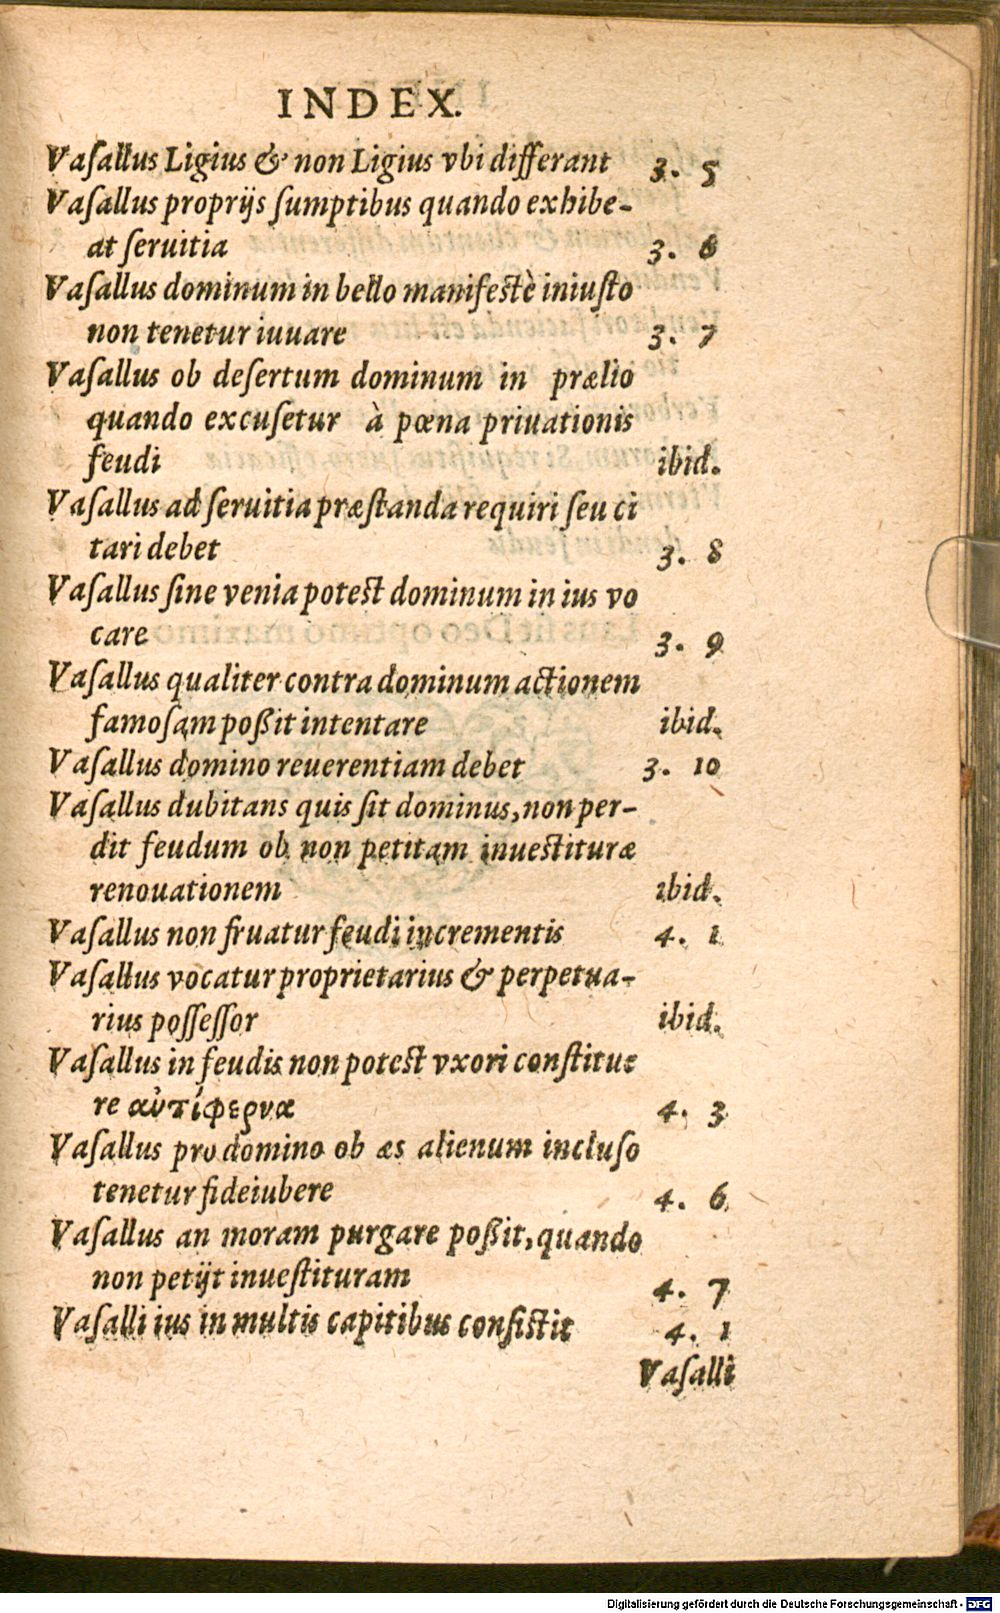 INDEX.
Vaſallus Ligius & non Ligius vbi differant 3. 5
Vaſallus proprijs ſumptibus quando exhibe-
at ſeruitia 3. 6
Vaſallus dominum in bello manifeſtè iniuſto
non tenetur iuuare 3. 7
Vaſallus ob deſertum dominum in prælio
quando excuſetur à pœna priuationis
feudi ibid.
Vaſallus ad ſeruitia præſtanda requiri ſeu ci
tari debet 3. 8
Vaſallus ſine venia poteſt dominum in ius vo
care 3. 9
Vaſallus qualiter contra dominum actionem
famoſam poßit intentare ibid.
Vaſallus domino reuerentiam debet 3. 10
Vaſallus dubitans quis ſit dominus, non per-
dit feudum ob non petitam inueſtituræ
renouationem ibid.
Vaſallus non fruatur feudi incrementis 4. 1
Vaſallus vocatur proprietarius & perpetua-
rius poſſeſſor ibid.
Vaſallus in feudis non poteſt vxori conſtitue
re αὐτίφερνα 4. 3
Vaſallus pro domino ob æs alienum incluſo
tenetur fideiubere 4. 6
Vaſallus an moram purgare poßit, quando
non petijt inueſtituram 4. 7
Vaſalli ius in multis capitibus conſiſtit 4. 1
Vaſalli
Digitalisierung gefördert durch die Deutsche Forschungsgemeinschaft - DFG